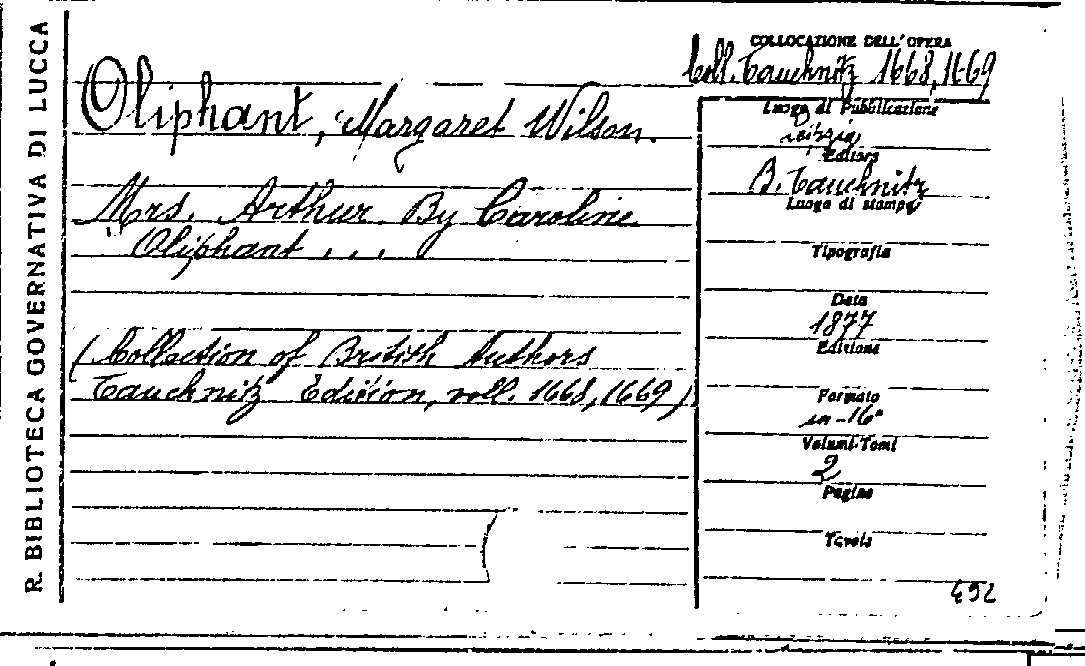 R. BIBLIOTECA GOVERNATIVA DI LUCCA
COLLOCAZIONE DELL'OPERA
Coll. Tauchnitz 1668,1669
Oliphant, Margaret Wilson.
Mrs. Arthur By Caroline
Oliphant . . .
(Collection of British Authors
Tauchnitz Edition, voll. 1668, 1669)
Luogo di Pubblicazione
Leipzig
Editore
B. Tauchnitz
Luogo di stampa
Tipografia
Data
1877
Edizione
Formato
in-16°
Volumi-Tomi
2
Pagine
Tavole
492